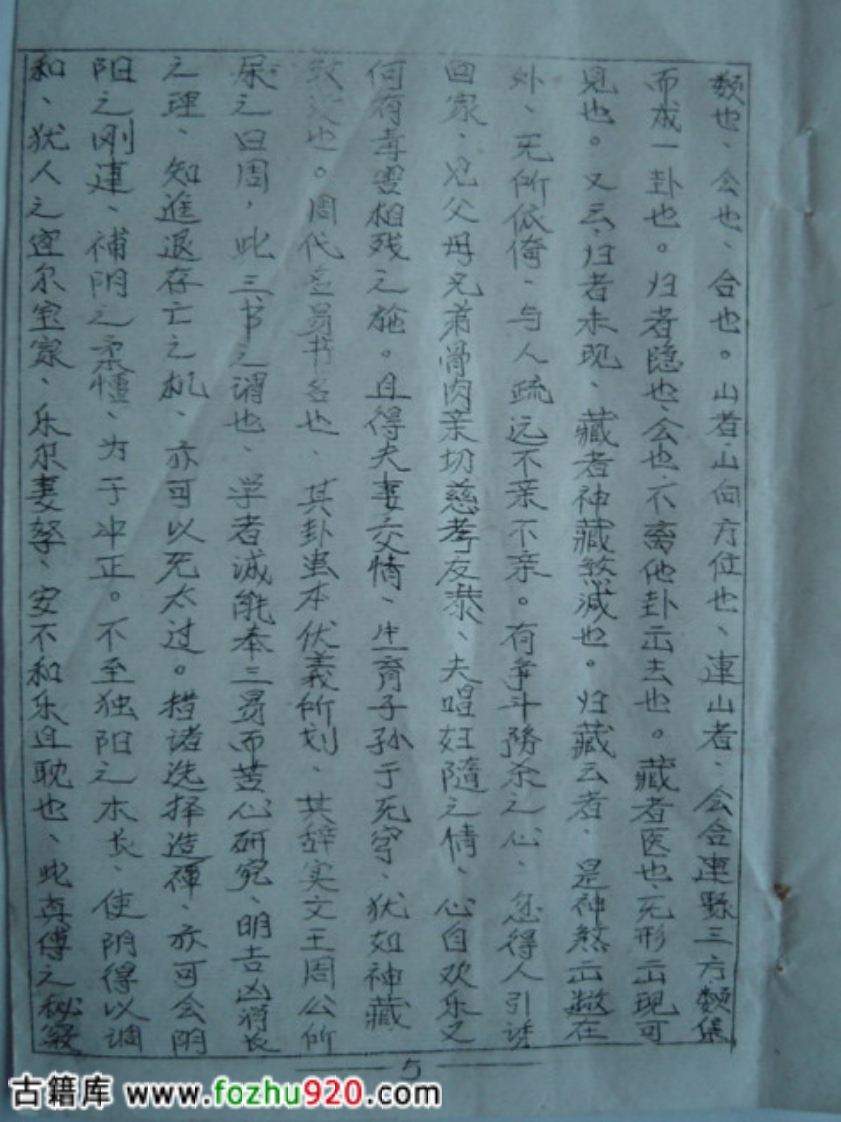 类也、会也、合也。山者、山向方位也、連山者、会合連縣三方类集
而成一卦也。归者隐也、会也、不离他卦出去也。藏者医也、无形出现可
見也。又云、归者未现、藏者神藏煞減也。归藏云者、是神煞出遊在
外、无所依倚、与人疏远不亲不亲。有争斗勝杀之心、忽得人引诱
回家、见父母兄弟骨肉亲切慈孝友恭、夫唱妇隨之情、心自欢乐又
何有毒害相残之施。且得夫妻交情、生育子孙于无穷、犹如神藏
也。周代名易书名也、其卦虽本伏義所划、其辞实文王周公所
之曰周，此三书之谓也、学者诚能本三易而苦心研究、明吉凶消長
之理、知進退存亡之机、亦可以无太过。措诸选择造禅、亦可会阴
阳之刚連、補阴之柔懂、为于冲正。不至独阳之木长、使阴得以调
和、犹人之宜尔室家、乐尔妻孥、安不和乐且耽也、此真傳之秘竅
5
古籍库 www.fozhu920.com